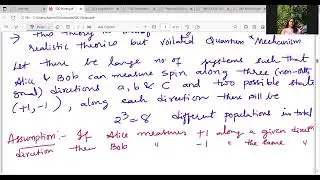 → This theory is
realistic theories but voilated Quantum Mechanism
Let there be large no of systems such that
Alice & Bob can measure spin along three (non-ortho
gonal) directions a, b & C and two possible states
(+1, -1), along each direction there will be
2³ = 8 different populations in total
Assumption:- If Alice measures +1 along a given direct
direction then Bob " -1 " the same "